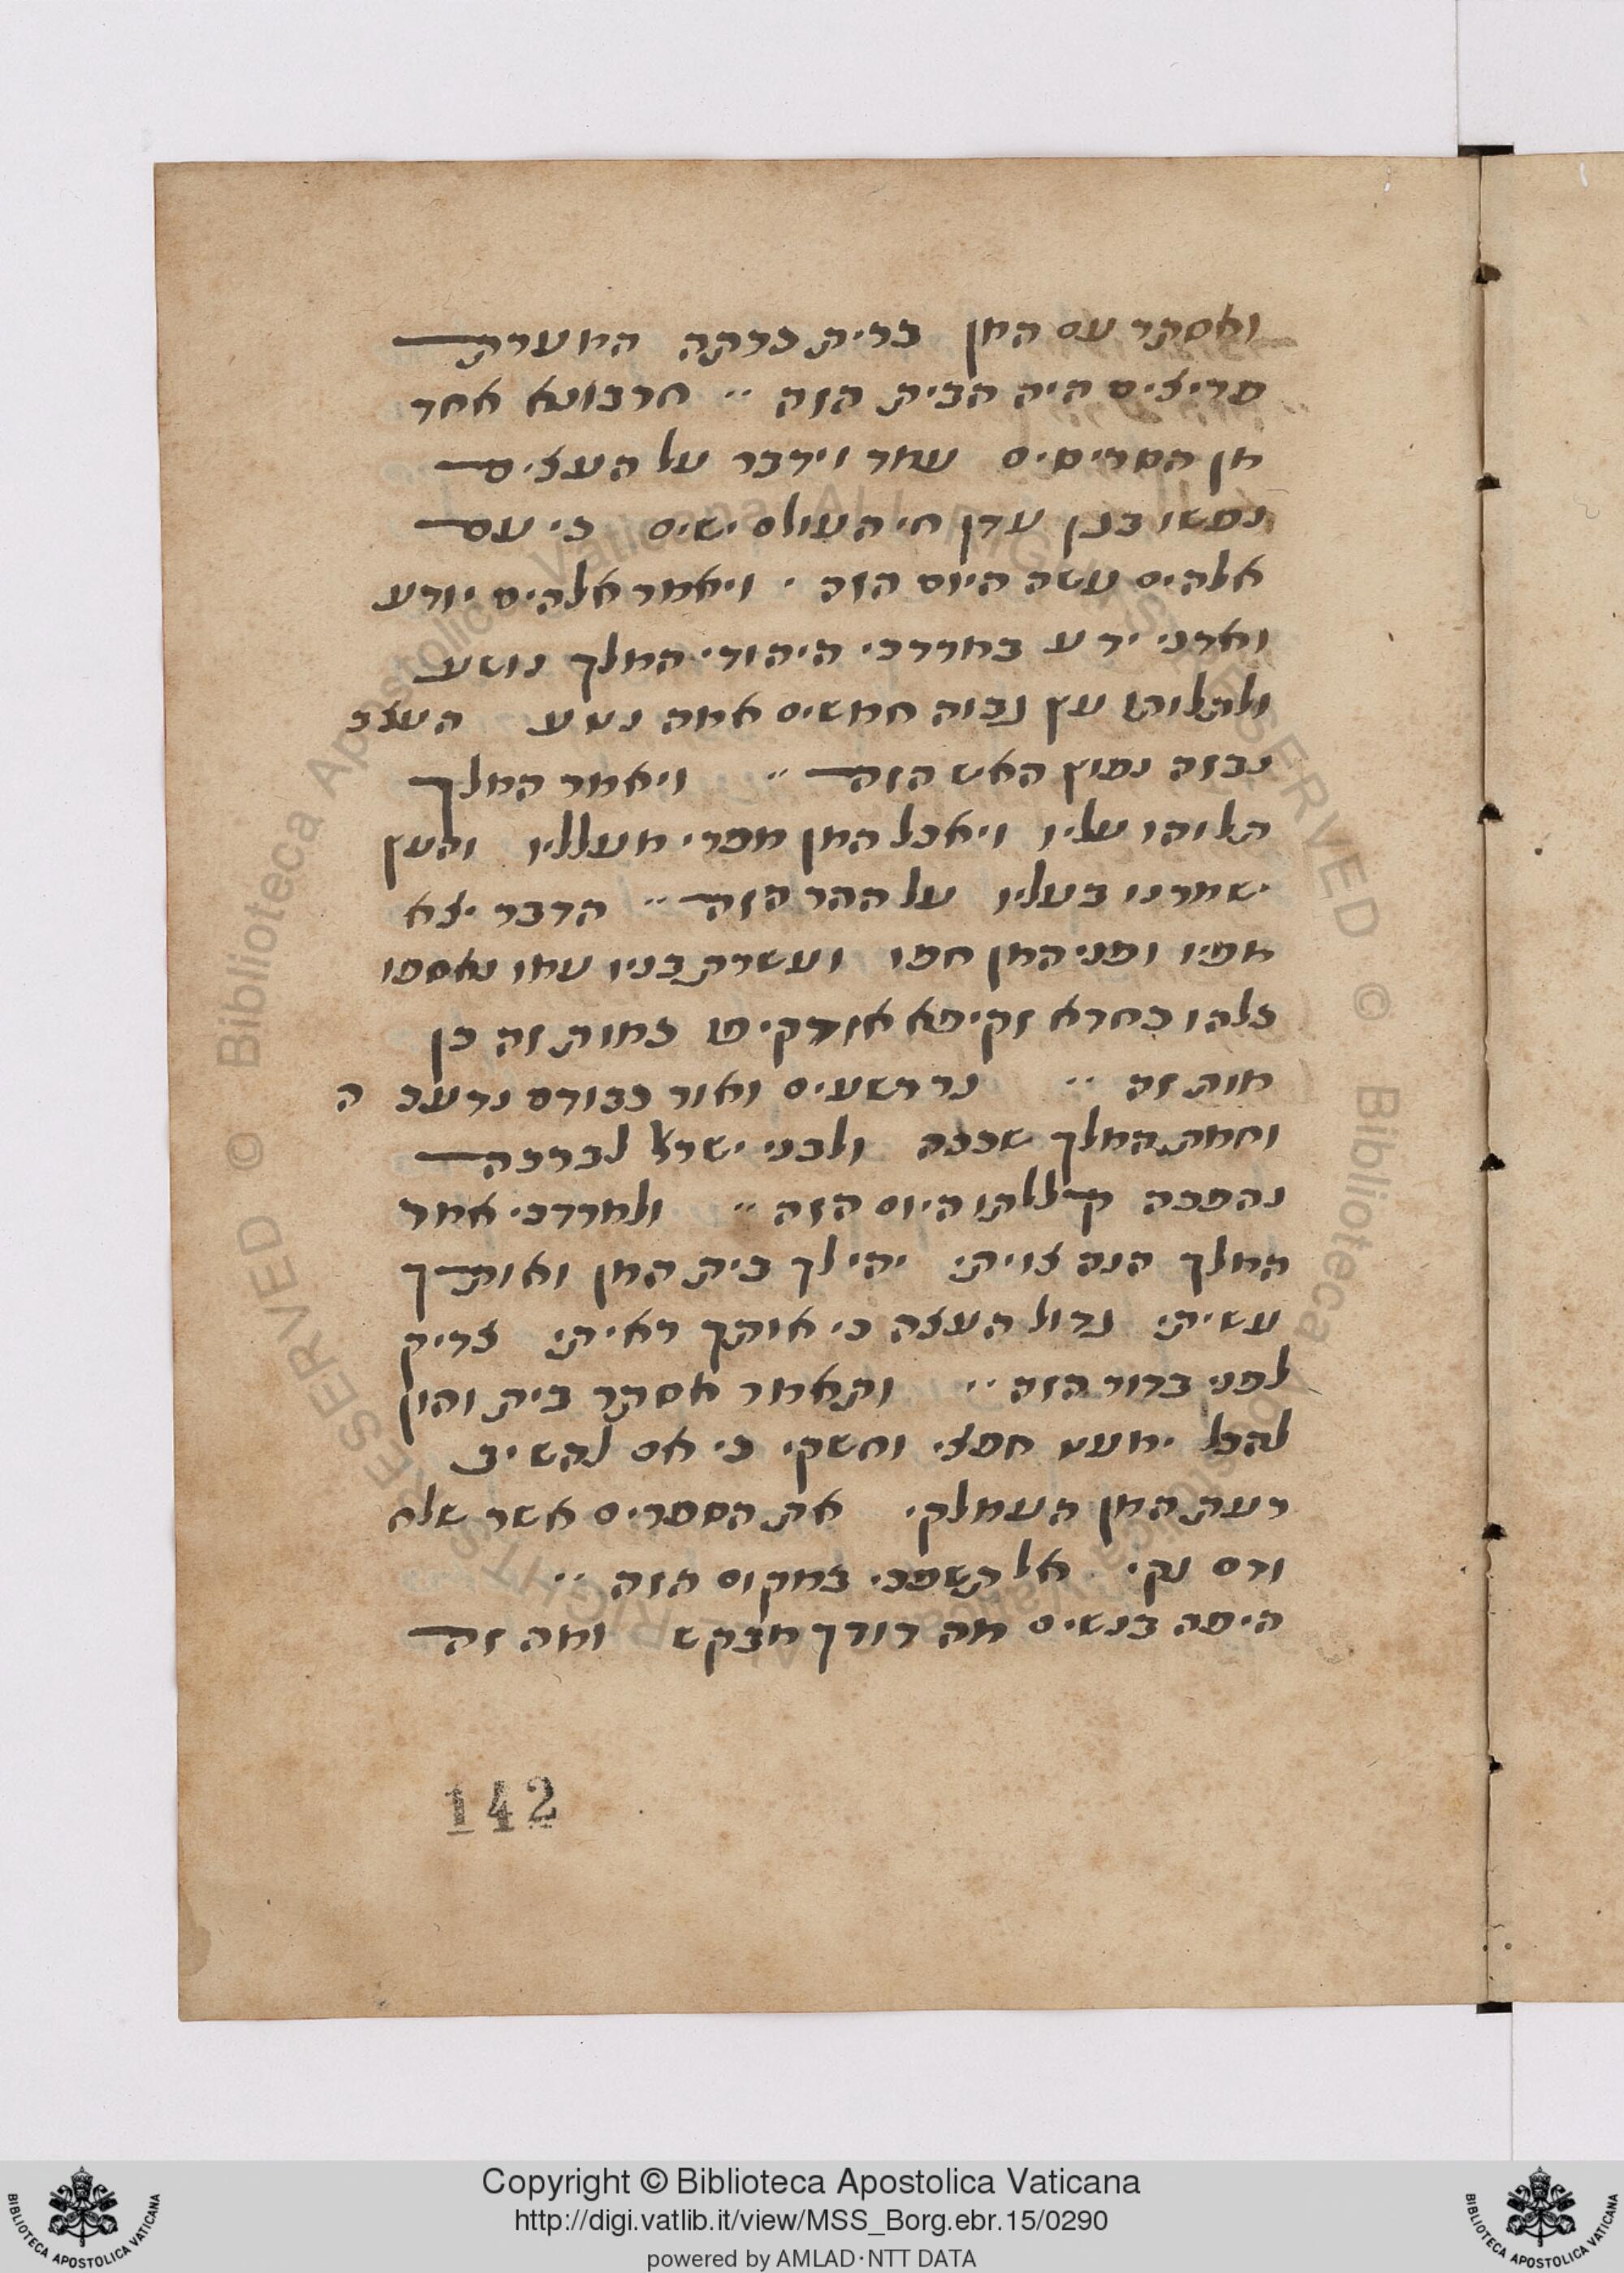 ואסתר עם המן ברית כרתה המערת
פריצים היה הבית הזה ·· חרבונא אחד
מן הסריסים עמד וידבר על העצים
נפשו בגן עדן חי העולם ישים כי עם
אלהים עשה היום הזה · ויאמר אלהים יודע
ואדני ידע במרדכי היהודי המלך נושע
ולתלותו עץ גבוה חמשים אמה נטע העצב
נבזה נפוץ האיש הזה ·· ויאמר המלך
תלוהו עליו ויאכל המן מפרי מעלליו והעץ
ישמרנו בעליו על ההר הזה ·· הדבר יצא
מפיו ופני המן חפו ועשרת בניו עמו נאספו
כלהו כחדא זקיפא אזדקיפו כמות זה כן
מות זה ·· נר רשעים ואור כבודם נדעכ ה
וחמת המלך שככה ולבני ישראל לברכה
נהפכה קללתו היום הזה ·· ולמרדכי אמר
המלך הנה צויתי יהי לך בית המן ואותך
עשיתי גדול העצה כי אותך ראיתי צדיק
לפני בדור הזה ·· ותאמר אסתר בית והון
להכל ימעט חפצי וחשקי כי אם להשיב
רעת המן העמלקי את הספרים אשר שלח
ודם נקי אל תשפכי במקום הזה ··
היפה בנשים מה דודך מבקש ומה זה
142
Copyright © Biblioteca Apostolica Vaticana
http://digi.vatlib.it/view/MSS_Borg.ebr.15/0290
powered by AMLAD·NTT DATA